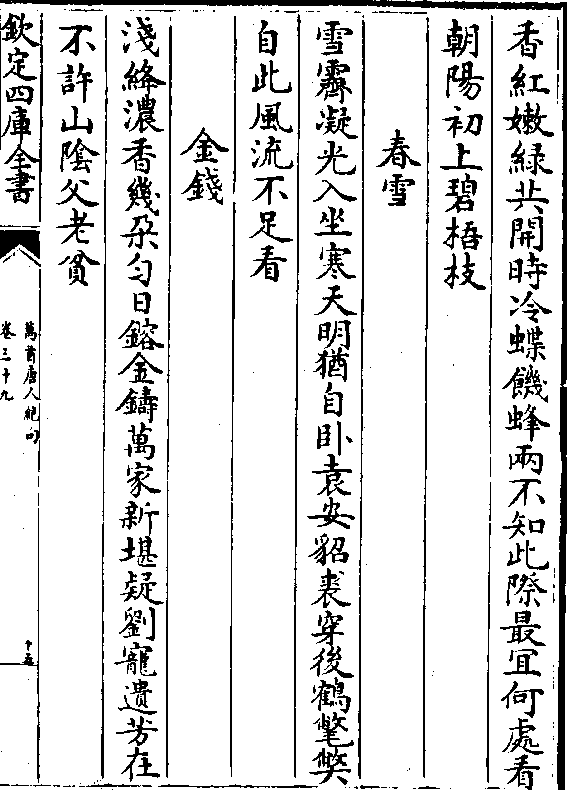 香紅嫩緑共開時冷蝶饑蜂兩不知此際最宜何處看
朝陽初上碧梧枝
春雪
雪霽凝光入坐寒天明猶自卧袁安貂裘穿後鶴氅獘
自此風流不足看
金錢
淺絳濃香幾朶匀日鎔金鑄萬家新堪疑劉寵遺芳在
不許山隂父老貧
欽定四庫全書
萬首唐人絶句
卷三十九
十五